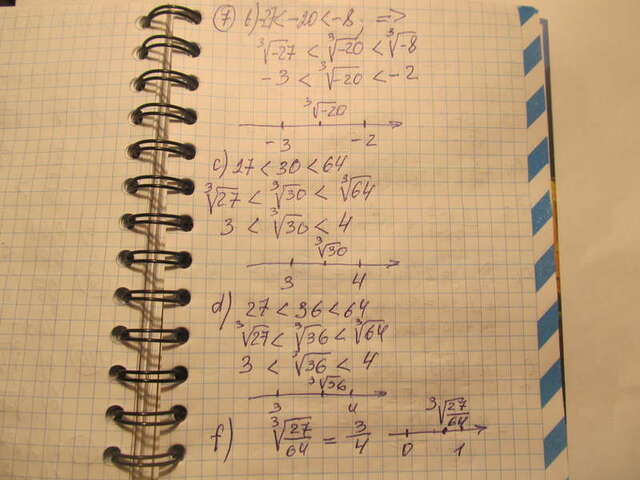 ⑦ b) -27 < -20 < -8; =>
∛-27 < ∛-20 < ∛-8
-3 < ∛-20 < -2
∛-20
-3 -2
c) 27 < 30 < 64
∛27 < ∛30 < ∛64
3 < ∛30 < 4
∛30
3 4
d) 27 < 36 < 64
∛27 < ∛36 < ∛64
3 < ∛36 < 4
∛36
3 4
f) ∛(27/64) = 3/4
∛(27/64)
0 1